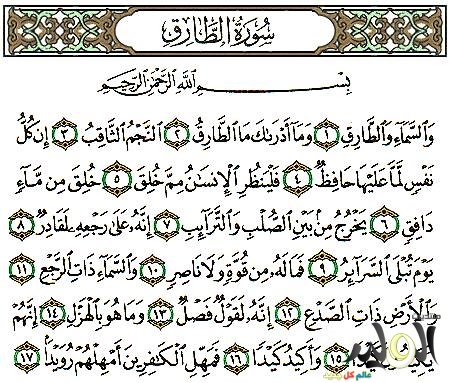 سُورَةُ الطَّارِقِ
بِسْمِ اللَّهِ الرَّحْمَٰنِ الرَّحِيمِ
وَالسَّمَاءِ وَالطَّارِقِ ١ وَمَا أَدْرَىٰكَ مَا الطَّارِقُ ٢ النَّجْمُ الثَّاقِبُ ٣ إِن كُلُّ
نَفْسٍ لَّمَّا عَلَيْهَا حَافِظٌ ٤ فَلْيَنظُرِ الْإِنسَٰنُ مِمَّ خُلِقَ ٥ خُلِقَ مِن مَّاءٍ
دَافِقٍ ٦ يَخْرُجُ مِنْ بَيْنِ الصُّلْبِ وَالتَّرَائِبِ ٧ إِنَّهُ عَلَىٰ رَجْعِهِ لَقَادِرٌ ٨
يَوْمَ تُبْلَى السَّرَائِرُ ٩ فَمَا لَهُ مِن قُوَّةٍ وَلَا نَاصِرٍ ١٠ وَالسَّمَاءِ ذَاتِ الرَّجْعِ ١١
وَالْأَرْضِ ذَاتِ الصَّدْعِ ١٢ إِنَّهُ لَقَوْلٌ فَصْلٌ ١٣ وَمَا هُوَ بِالْهَزْلِ ١٤ إِنَّهُمْ
يَكِيدُونَ كَيْدًا ١٥ وَأَكِيدُ كَيْدًا ١٦ فَمَهِّلِ الْكَٰفِرِينَ أَمْهِلْهُمْ رُوَيْدًا ١٧